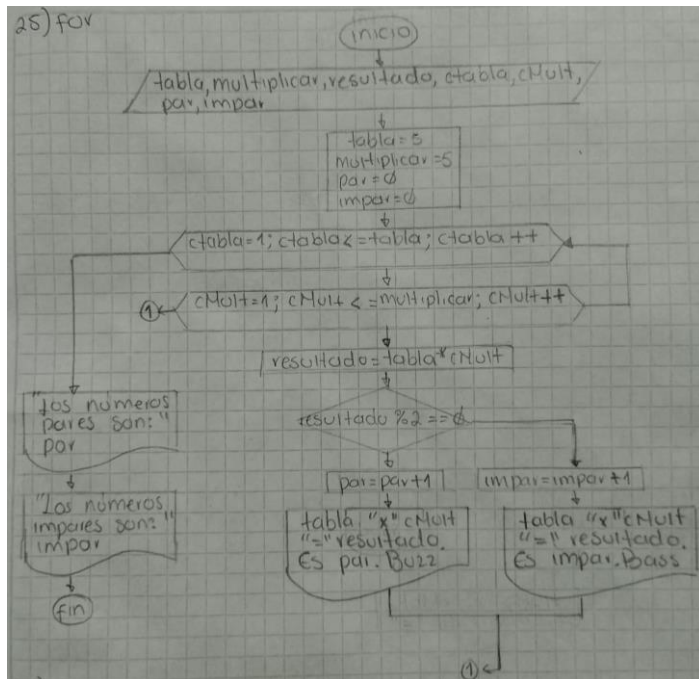 25) for
inicio
tabla, multiplicar, resultado, ctabla, cMult,
par, impar
tabla=5
multiplicar=5
par=∅
impar=∅
ctabla=1; ctabla<=tabla; ctabla++
① cMult=1; cMult<=multiplicar; cMult++
resultado=tabla*cMult
resultado %2==∅
par=par+1
impar=impar+1
tabla "x" cMult
"=" resultado.
Es par. Buzz
tabla "x" cMult
"=" resultado.
Es impar. Bass
①
"Los números
pares son:"
par
"Los números
impares son:"
impar
fin